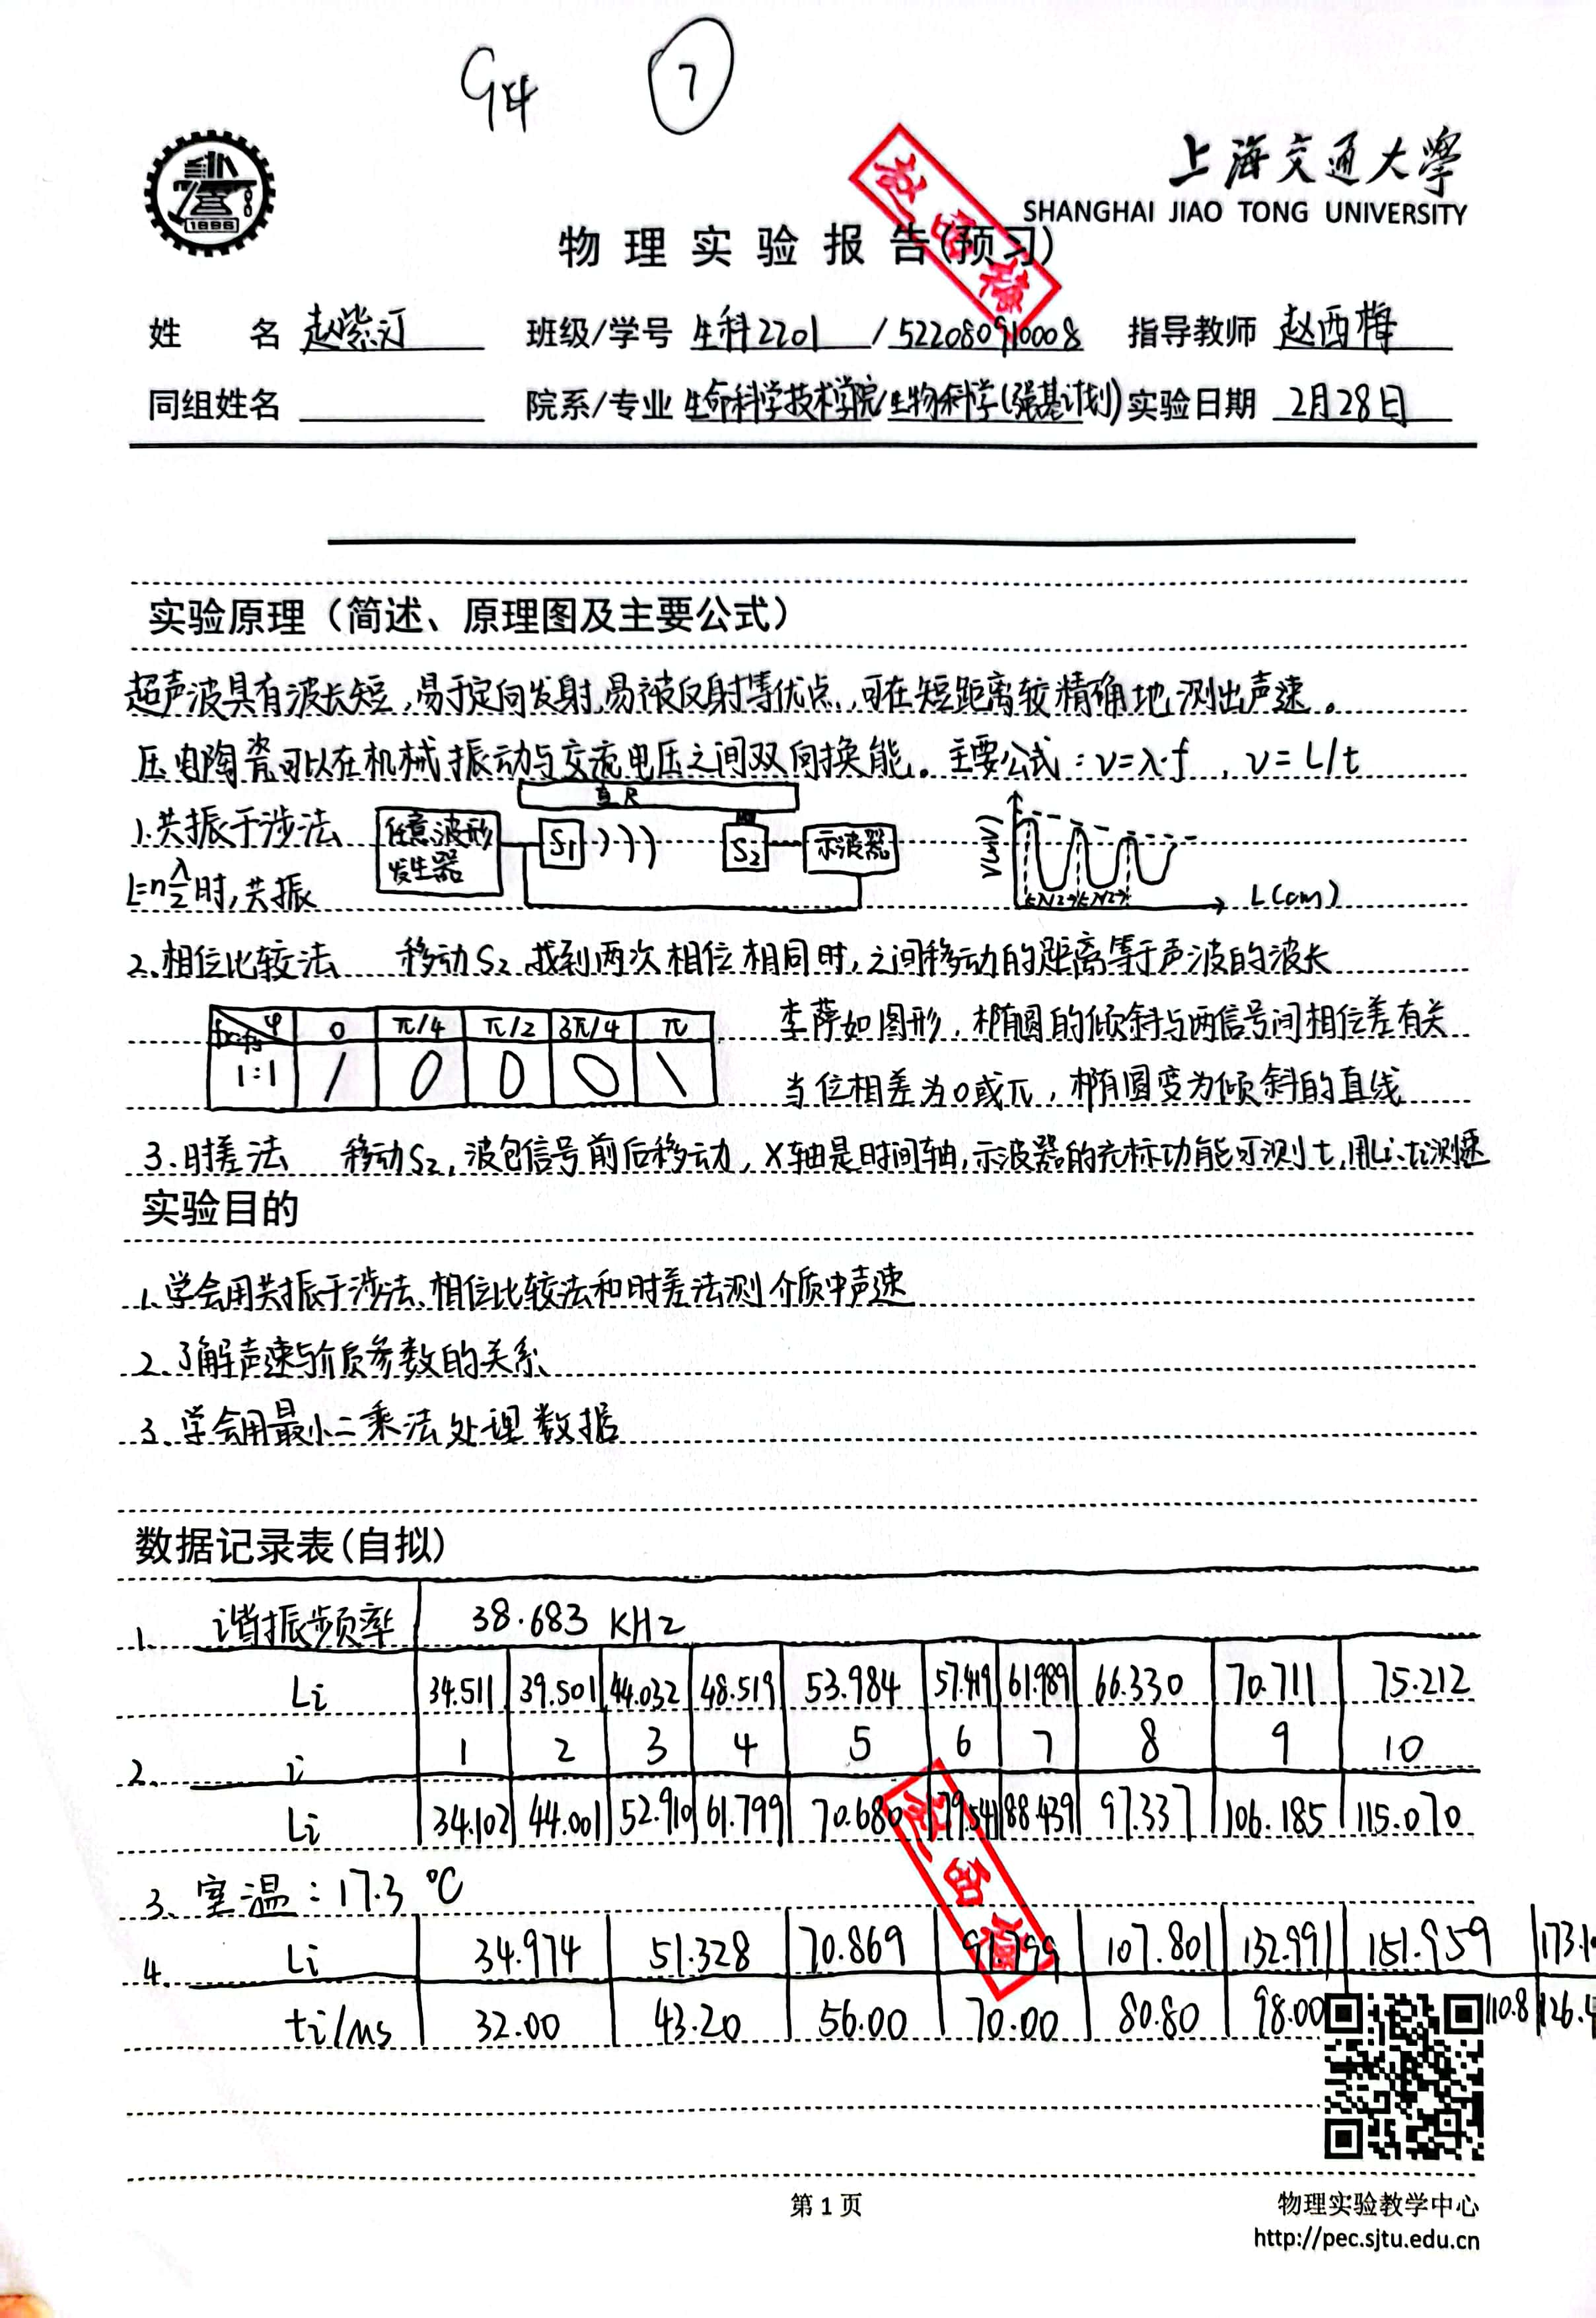 94 7
上海交通大學
SHANGHAI JIAO TONG UNIVERSITY
1896
物理实验报告(预习)
姓 名 赵紫汀 班级/学号 生科2201 / 522080910008 指导教师 赵西梅
同组姓名 院系/专业 生命科学技术学院/生物科学(强基计划) 实验日期 2月28日
实验原理（简述、原理图及主要公式）
超声波具有波长短,易于定向发射,易被反射等优点,可在短距离较精确地测出声速。
压电陶瓷可以在机械振动与交流电压之间双向换能。主要公式:v=λ·f , v=L/t
1.共振干涉法 任意波形发生器 S1 直尺 S2 示波器 V(mV) L(cm)
L=nλ/2时,共振
2.相位比较法 移动S2,找到两次相位相同时,之间移动的距离等于声波的波长
φ 0 π/4 π/2 3π/4 π 李萨如图形,椭圆的倾斜与两信号间相位差有关
1:1 当位相差为0或π,椭圆变为倾斜的直线
3.时差法 移动S2,波包信号前后移动,X轴是时间轴,示波器的光标功能可测t,用Li、ti测速
实验目的
1.学会用共振干涉法、相位比较法和时差法测介质中声速
2.了解声速与介质参数的关系
3.学会用最小二乘法处理数据
数据记录表(自拟)
1. 谐振频率 38.683 KHz
Li 34.511 39.501 44.032 48.519 53.984 57.419 61.989 66.330 70.711 75.212
2. i 1 2 3 4 5 6 7 8 9 10
Li 34.102 44.001 52.910 61.799 70.680 79.541 88.439 97.337 106.185 115.070
3. 室温:17.3 ℃
4. Li 34.974 51.328 70.869 107.801 132.991 151.959
ti/μs 32.00 43.20 56.00 70.00 80.80 98.00 110.8
第 1 页
物理实验教学中心
http://pec.sjtu.edu.cn